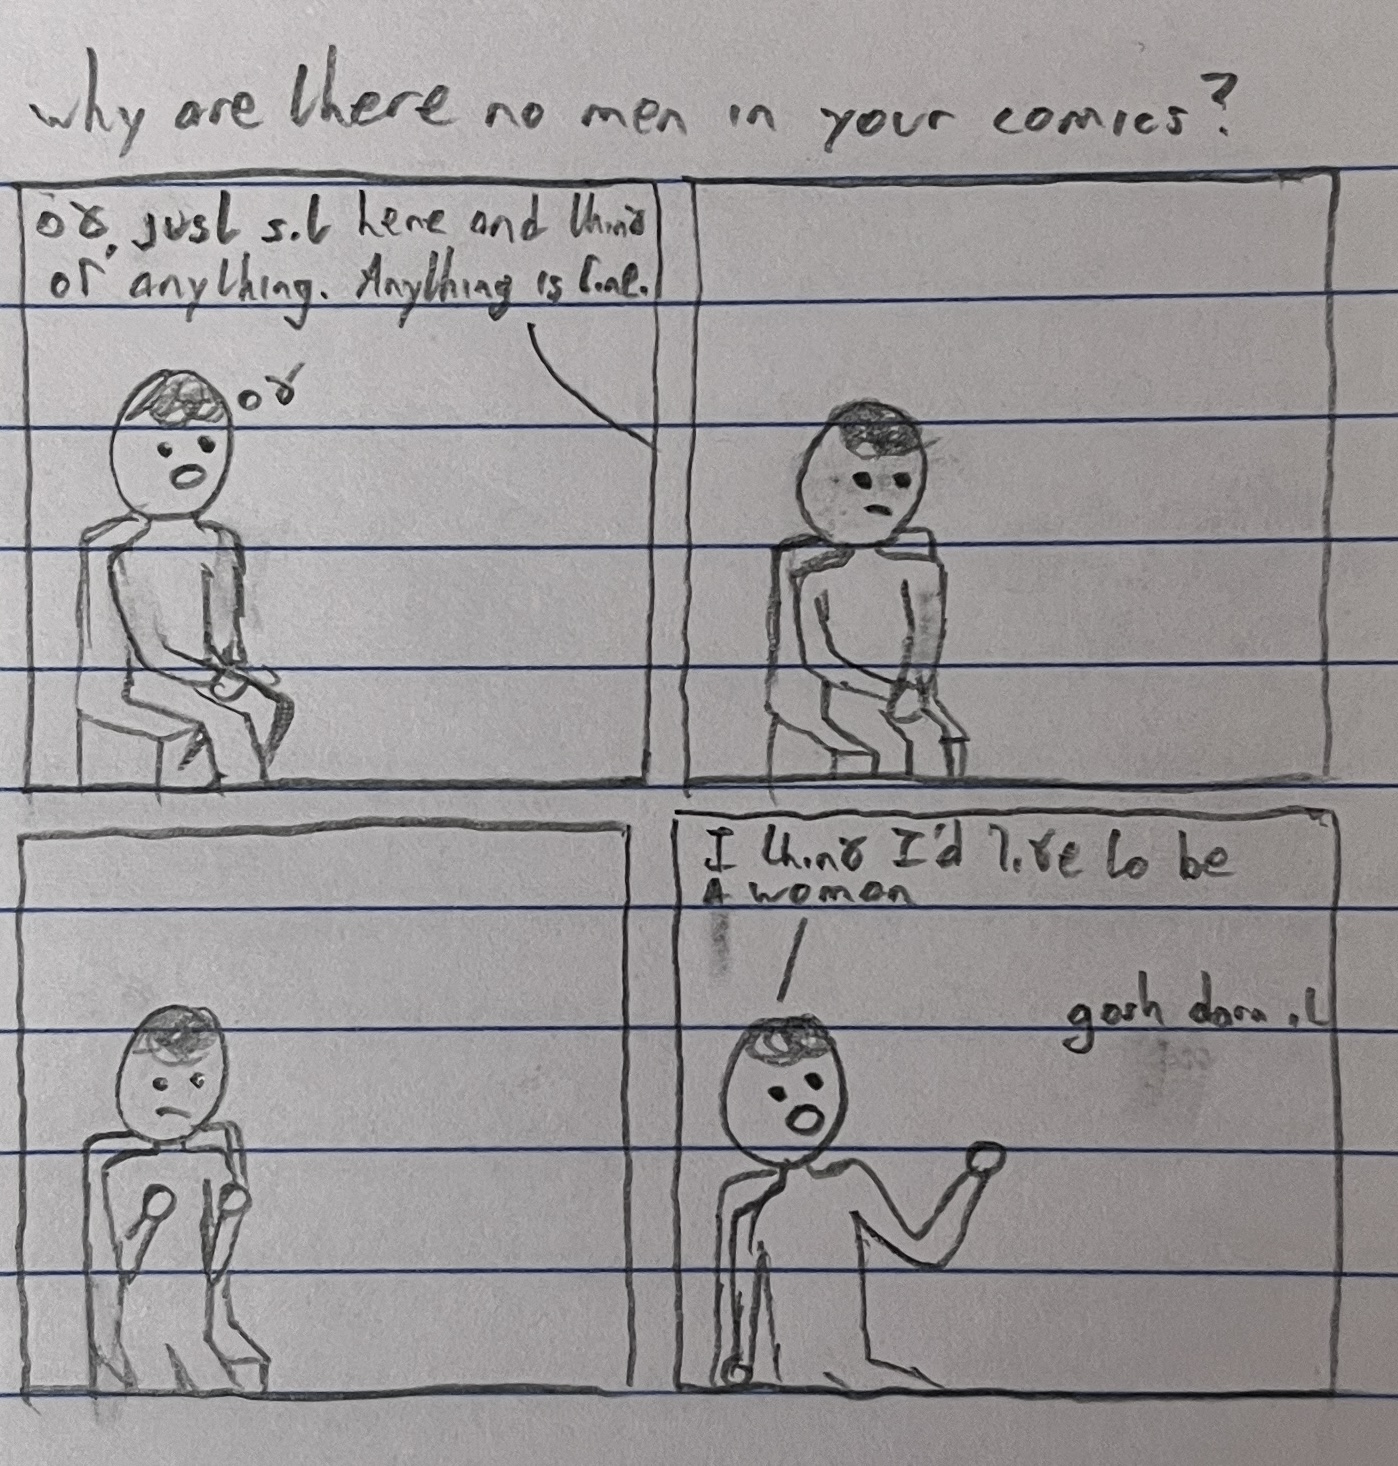 why are there no men in your comics?
ok, just sit here and think
of anything. Anything is fine.
ok
I think I'd like to be
A woman
gosh darn it